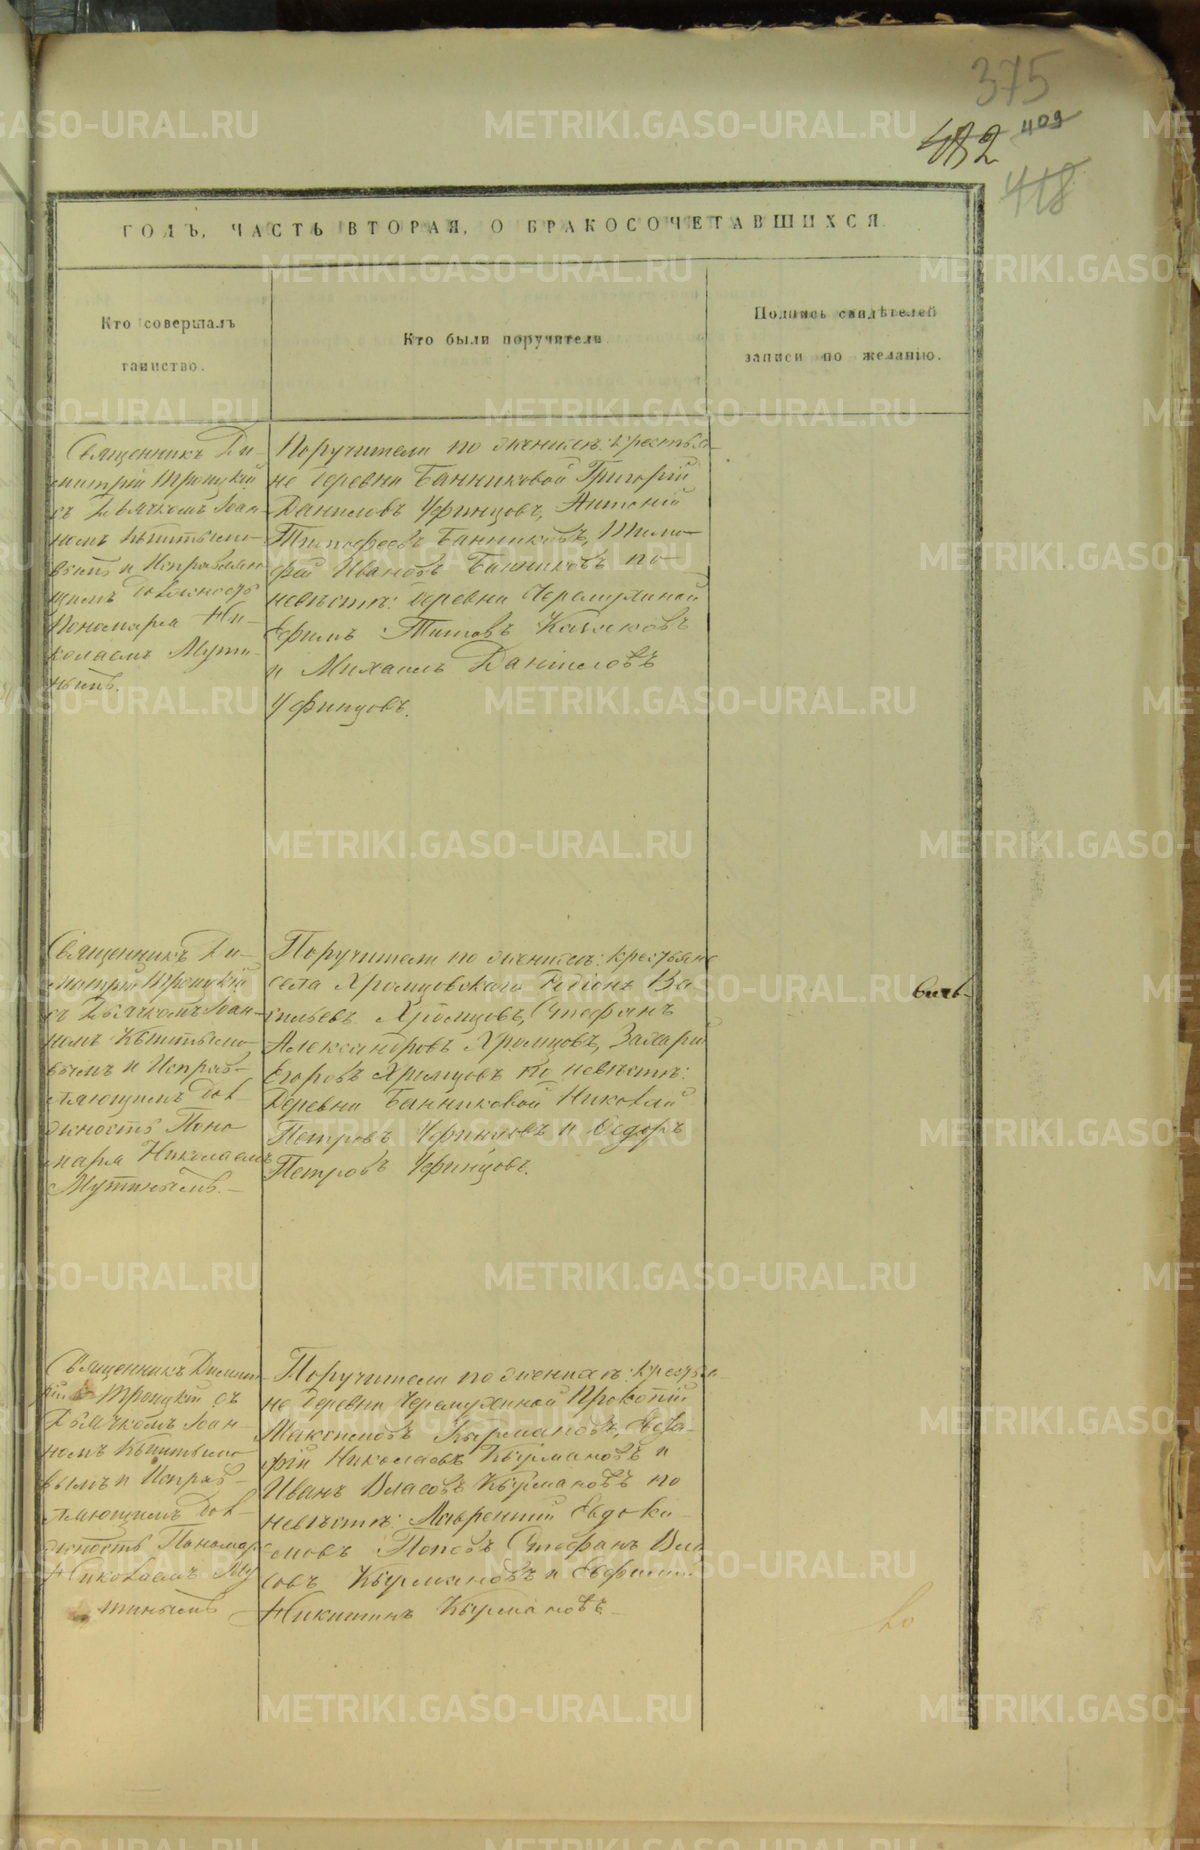 375
432 409
418
ГОДЪ, ЧАСТЬ ВТОРАЯ, О БРАКОСОЧЕТАВШИХСЯ.
Кто совершалъ
таинство.
Кто были поручители.
Подпись свидѣтелей
записи по желанію.
Священникъ Ди-
митрій Троицкій
съ Дьячкомъ Іоан-
номъ
вымъ и Исправляю-
щимъ Должность
Пономаря Ни-
колаемъ Мути-
нымъ.
Поручители по женихѣ: крестья-
не деревни Банниковой Григорій
Даниловъ Уфинцовъ, Антоній
Тимофеевъ Банниковъ, Тимо-
фей Ивановъ Банниковъ по
невѣстѣ: деревни Черемухиной
Ефимъ Титовъ Казаковъ
и Михаилъ Даниловъ
Уфинцовъ.
Священникъ Ди-
митрій Троицкій
съ Дьячкомъ Іоан-
номъ
вымъ и Исправ-
ляющимъ Дол-
жность Поно-
маря Николаемъ
Мутинымъ.
Поручители по женихѣ: крестьяне
села Хромцовскаго Родіонъ Ва-
сильевъ Хромцовъ, Стефанъ
Александровъ Хромцовъ, Захарій
Егоровъ Хромцовъ по невѣстѣ:
Деревни Банниковой Николай
Петровъ Уфинцовъ и Ѳедоръ
Петровъ Уфинцовъ.
Священникъ Димит-
рій Троицкій съ
Дьячкомъ Іоан-
номъ
вымъ и Исправ-
ляющимъ Дол-
жность Пономаря
Николаемъ Му-
тинымъ
Поручители по женихѣ: крестья-
не деревни Черемухиной Прокопій
Максимовъ Кырмановъ,
Николаевъ Кырмановъ и
Иванъ Власовъ Кырмановъ по
невѣстѣ: Лаврентій Евдоки-
мовъ Поповъ Стефанъ Вла-
совъ Кырмановъ и Евфимій
Никитинъ Кырмановъ.
METRIKI.GASO-URAL.RU